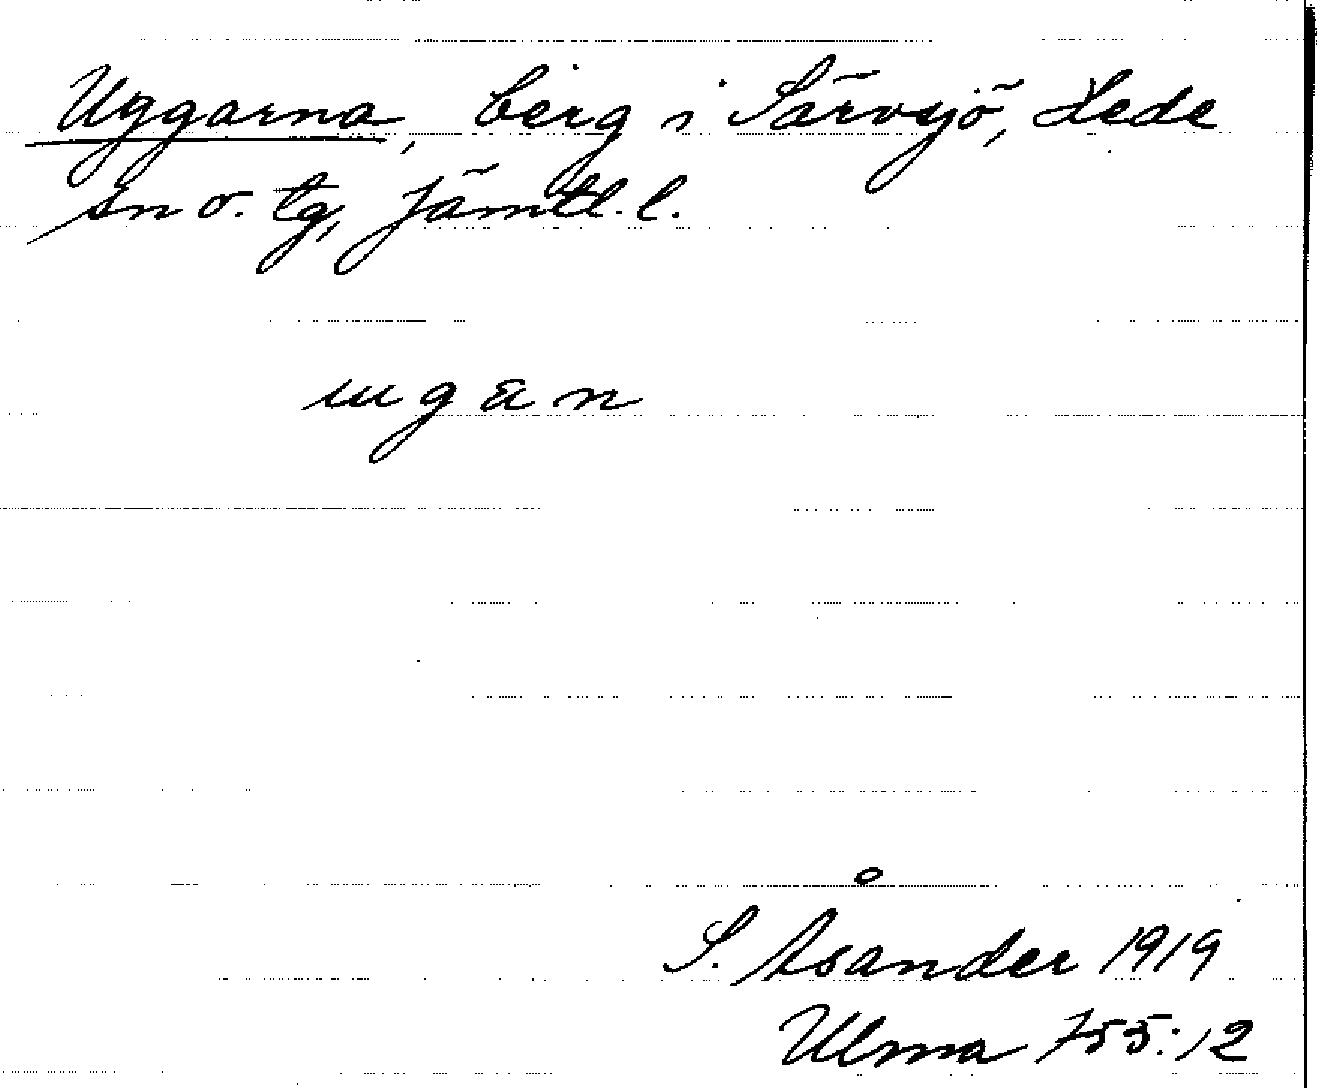 Uggarna, berg i Särvsjö, Hede
sn o. tg, Jämtl. l.
S. Åsander 1919
Ulma 755:12